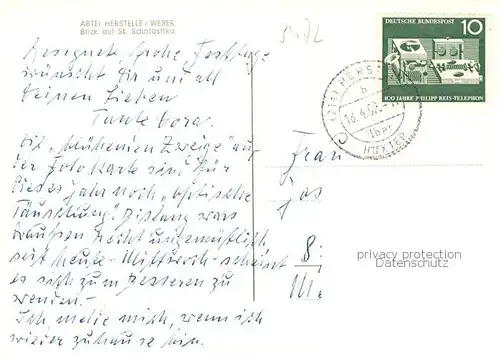 ABTEI HERSTELLE / WESER
Blick auf St. Scholastika
DEUTSCHE BUNDESPOST 10
100 JAHRE PHILIPP REIS-TELEPHON
Gesegnete, frohe Festtage
wünscht Dir und all
Deinen Lieben
Tante Dora.
Die „blühenden Zweige" auf
der Fotokarte sind für
dieses Jahr noch „optische
Täuschung". Bislang wars
draußen recht ungemütlich,
seit heute - Mittwoch - scheint
es sich zum Besseren zu
wenden. -
Ich melde mich, wenn ich
wieder zuhause bin.
HERSTELLE
18.4.62
über
HÖXTER
Frau
privacy protection
Datenschutz